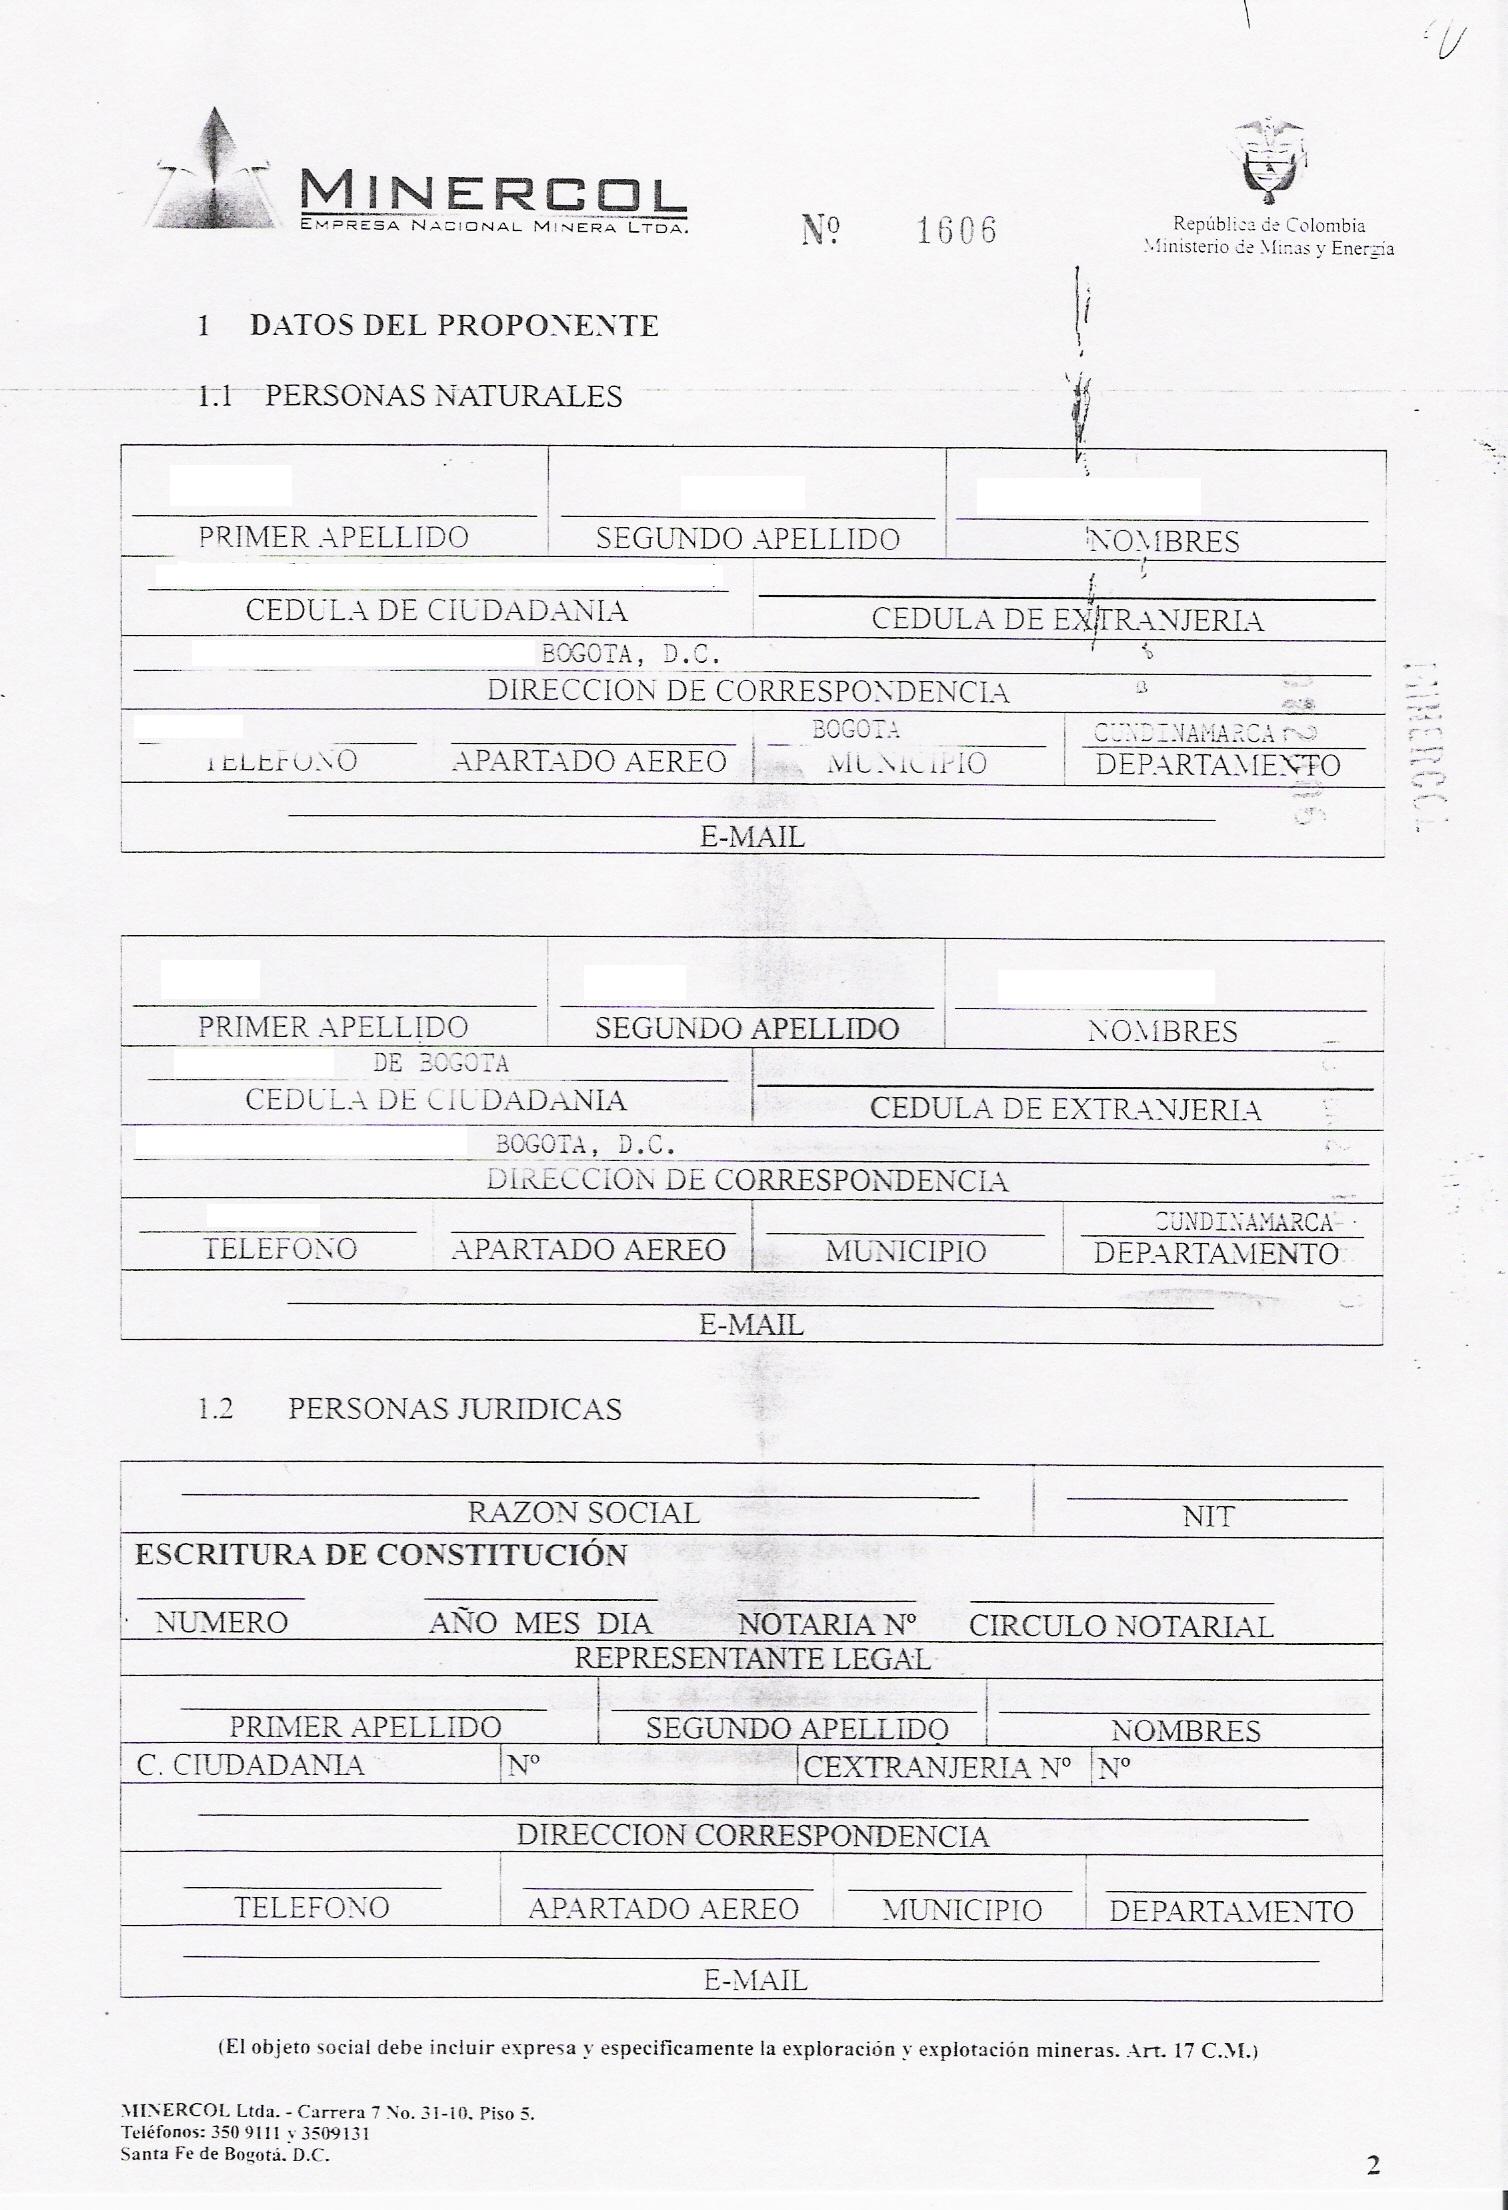 MINERCOL
EMPRESA NACIONAL MINERA LTDA.
Nº. 1606
República de Colombia
Ministerio de Minas y Energía
1 DATOS DEL PROPONENTE
1.1 PERSONAS NATURALES
PRIMER APELLIDO SEGUNDO APELLIDO NOMBRES
CEDULA DE CIUDADANIA CEDULA DE EXTRANJERIA
BOGOTA, D.C.
DIRECCION DE CORRESPONDENCIA
BOGOTA CUNDINAMARCA
TELEFONO APARTADO AEREO MUNICIPIO DEPARTAMENTO
E-MAIL
MINERCOL
PRIMER APELLIDO SEGUNDO APELLIDO NOMBRES
DE BOGOTA
CEDULA DE CIUDADANIA CEDULA DE EXTRANJERIA
BOGOTA, D.C.
DIRECCION DE CORRESPONDENCIA
CUNDINAMARCA
TELEFONO APARTADO AEREO MUNICIPIO DEPARTAMENTO
E-MAIL
1.2 PERSONAS JURIDICAS
RAZON SOCIAL NIT
ESCRITURA DE CONSTITUCIÓN
NUMERO AÑO MES DIA NOTARIA Nº CIRCULO NOTARIAL
REPRESENTANTE LEGAL
PRIMER APELLIDO SEGUNDO APELLIDO NOMBRES
C. CIUDADANIA Nº CEXTRANJERIA Nº Nº
DIRECCION CORRESPONDENCIA
TELEFONO APARTADO AEREO MUNICIPIO DEPARTAMENTO
E-MAIL
(El objeto social debe incluir expresa y especificamente la exploración y explotación mineras. Art. 17 C.M.)
MINERCOL Ltda. - Carrera 7 No. 31-10. Piso 5.
Teléfonos: 350 9111 y 3509131
Santa Fe de Bogotá. D.C.
2